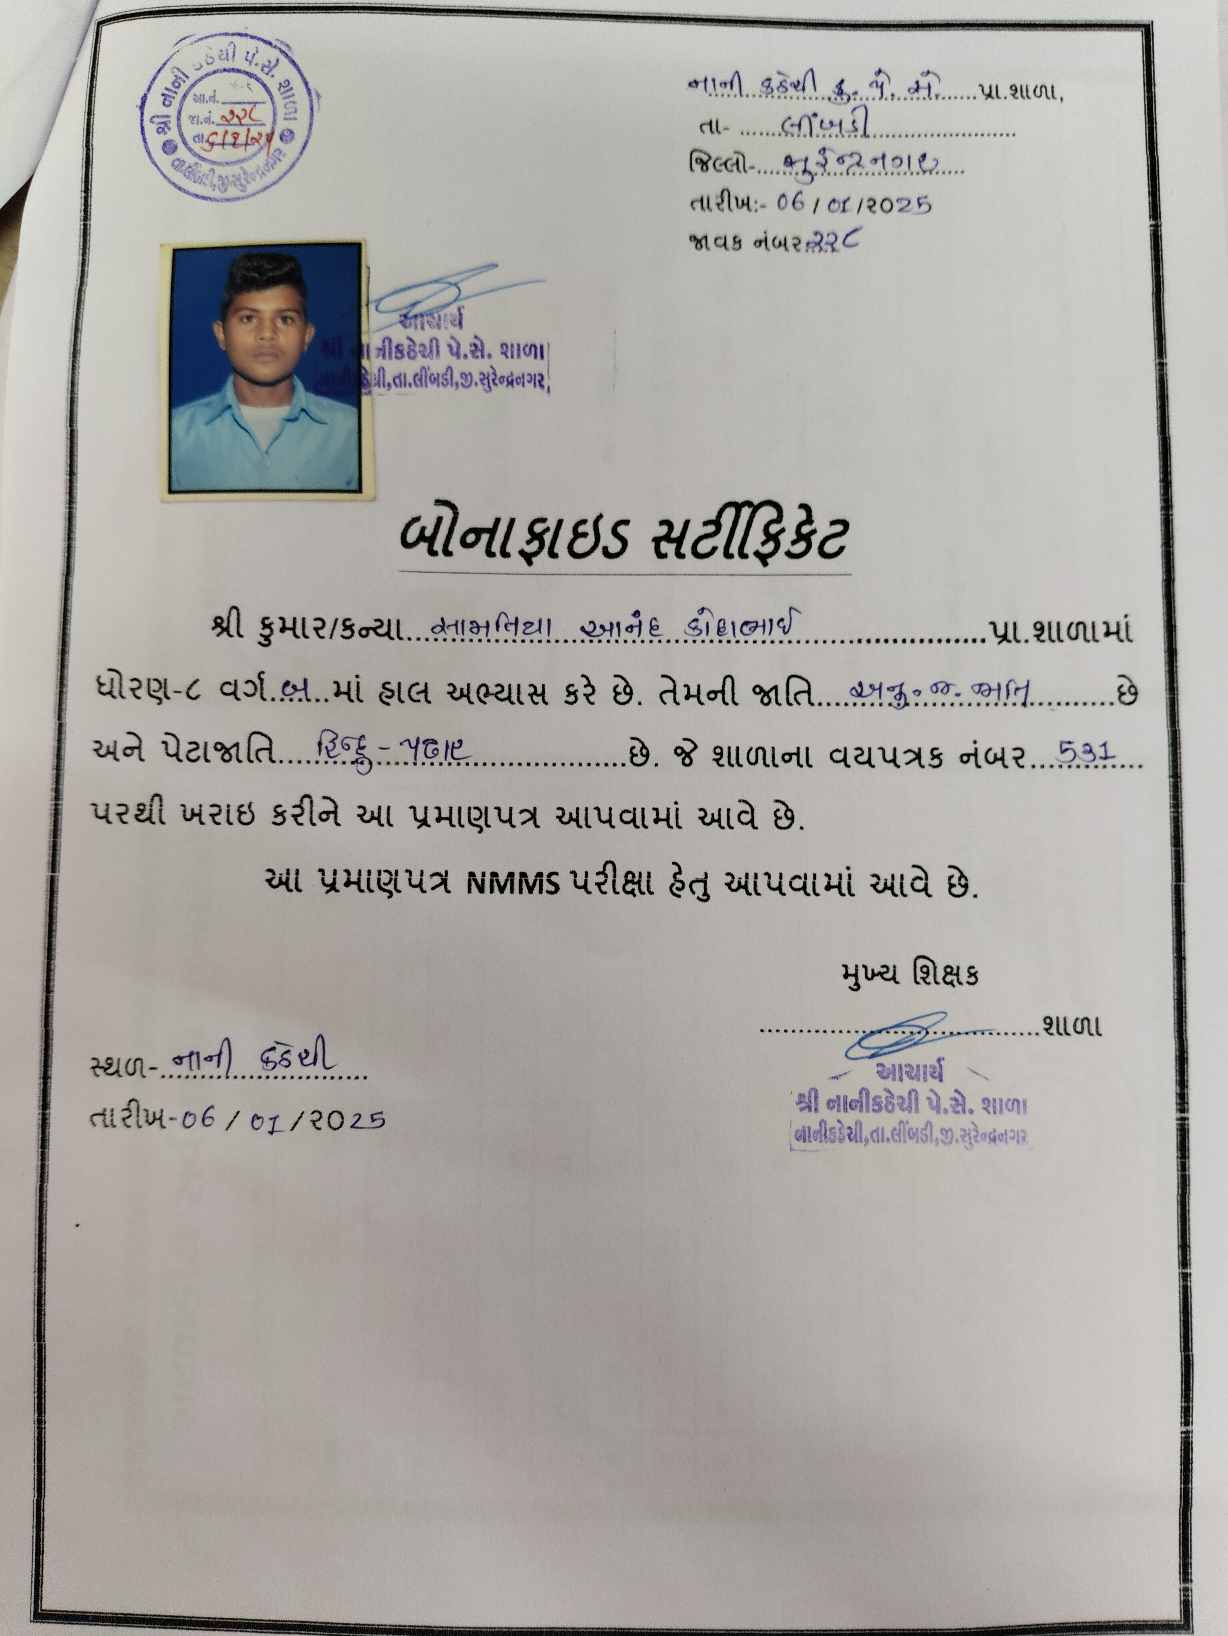 શ્રી નાની કઠેચી પે.સે. શાળા
આ.નં.
જા.નં. ૨૨૮
તા. ૬/૧/૨૫
તા.લીંબડી,જી.સુરેન્દ્રનગર
નાની કઠેચી કુ. પે. સે. પ્રા.શાળા,
તા- લીંબડી
જિલ્લો- સુરેન્દ્રનગર
તારીખ:- 06/01/૨025
જાવક નંબર ૨૨૮
આચાર્ય
શ્રી નાનીકઠેચી પે.સે. શાળા
નાનીકઠેચી,તા.લીંબડી,જી.સુરેન્દ્રનગર
બોનાફાઇડ સર્ટીફિકેટ
શ્રી કુમાર/કન્યા સામતિયા આનંદ પ્રા.શાળામાં
ધોરણ-૮ વર્ગ બ માં હાલ અભ્યાસ કરે છે. તેમની જાતિ અનુ. જ. જાતિ છે
અને પેટાજાતિ હિન્દુ - પઢાર છે. જે શાળાના વયપત્રક નંબર 531
પરથી ખરાઇ કરીને આ પ્રમાણપત્ર આપવામાં આવે છે.
આ પ્રમાણપત્ર NMMS પરીક્ષા હેતુ આપવામાં આવે છે.
મુખ્ય શિક્ષક
શાળા
સ્થળ- નાની કઠેચી
તારીખ-06/01/૨025
આચાર્ય
શ્રી નાનીકઠેચી પે.સે. શાળા
નાનીકઠેચી,તા.લીંબડી,જી.સુરેન્દ્રનગર